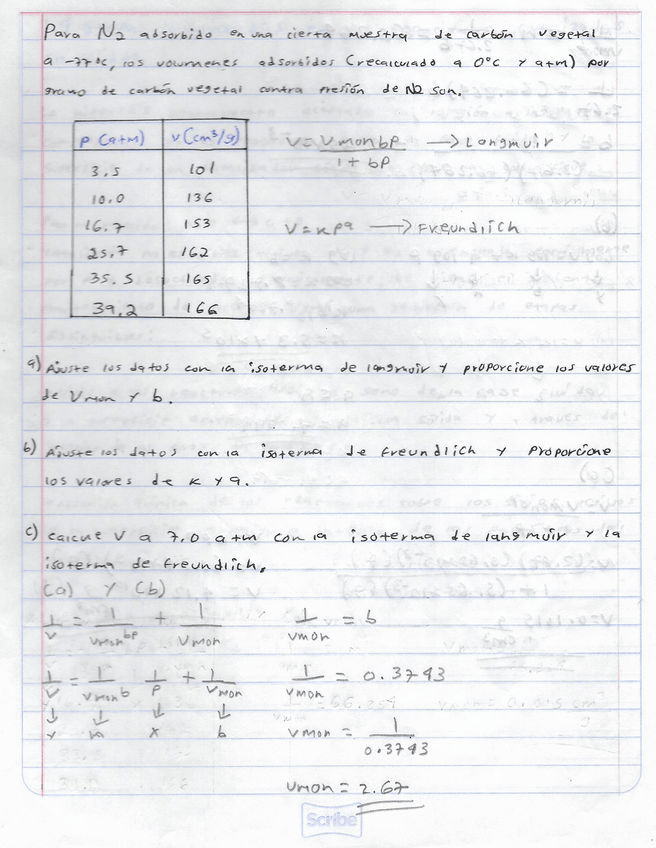 Para N2 adsorbido en una cierta muestra de carbón vegetal
a -77°C, los volumenes adsorbidos (recalculado a 0°C y atm) por
gramo de carbón vegetal contra presión de N2 son.
P (atm) V (cm³/g)
3.5 101
10.0 136
16.7 153
25.7 162
35.5 165
39.2 166
V = Vmon bP / 1 + bP → Langmuir
V = KPª → Freundlich
a) Ajuste los datos con la isoterma de langmuir y proporcione los valores
de Vmon y b.
b) Ajuste los datos con la isoterma de Freundlich y proporcione
los valores de K y a.
c) calcule V a 7.0 atm con la isoterma de langmuir y la
isoterma de Freundlich.
(a) y (b)
1/V = 1/Vmon bP + 1/Vmon
1/V = 1/Vmon b 1/P + 1/Vmon
↓ ↓ ↓ ↓
y m x b
1/Vmon = b
1/Vmon = 0.3743
Vmon = 1/0.3743
Vmon = 2.67
Scribe